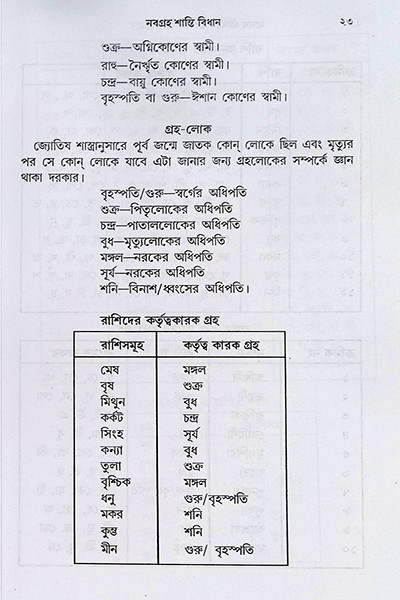 নবগ্রহ শান্তি বিধান ২৩
শুক্র—অগ্নিকোণের স্বামী।
রাহু—নৈর্ঋত কোণের স্বামী।
চন্দ্র—বায়ু কোণের স্বামী।
বৃহস্পতি বা গুরু—ঈশান কোণের স্বামী।
গ্রহ-লোক
জ্যোতিষ শাস্ত্রানুসারে পূর্ব জন্মে জাতক কোন্ লোকে ছিল এবং মৃত্যুর
পর সে কোন্ লোকে যাবে এটা জানার জন্য গ্রহলোকের সম্পর্কে জ্ঞান
থাকা দরকার।
বৃহস্পতি/গুরু—স্বর্গের অধিপতি
শুক্র—পিতৃলোকের অধিপতি
চন্দ্র—পাতাললোকের অধিপতি
বুধ—মৃত্যুলোকের অধিপতি
মঙ্গল—নরকের অধিপতি
সূর্য—নরকের অধিপতি
শনি—বিনাশ/ধ্বংসের অধিপতি।
রাশিদের কর্তৃত্বকারক গ্রহ
রাশিসমূহ কর্তৃত্ব কারক গ্রহ
মেষ মঙ্গল
বৃষ শুক্র
মিথুন বুধ
কর্কট চন্দ্র
সিংহ সূর্য
কন্যা বুধ
তুলা শুক্র
বৃশ্চিক মঙ্গল
ধনু গুরু/বৃহস্পতি
মকর শনি
কুম্ভ শনি
মীন গুরু/ বৃহস্পতি